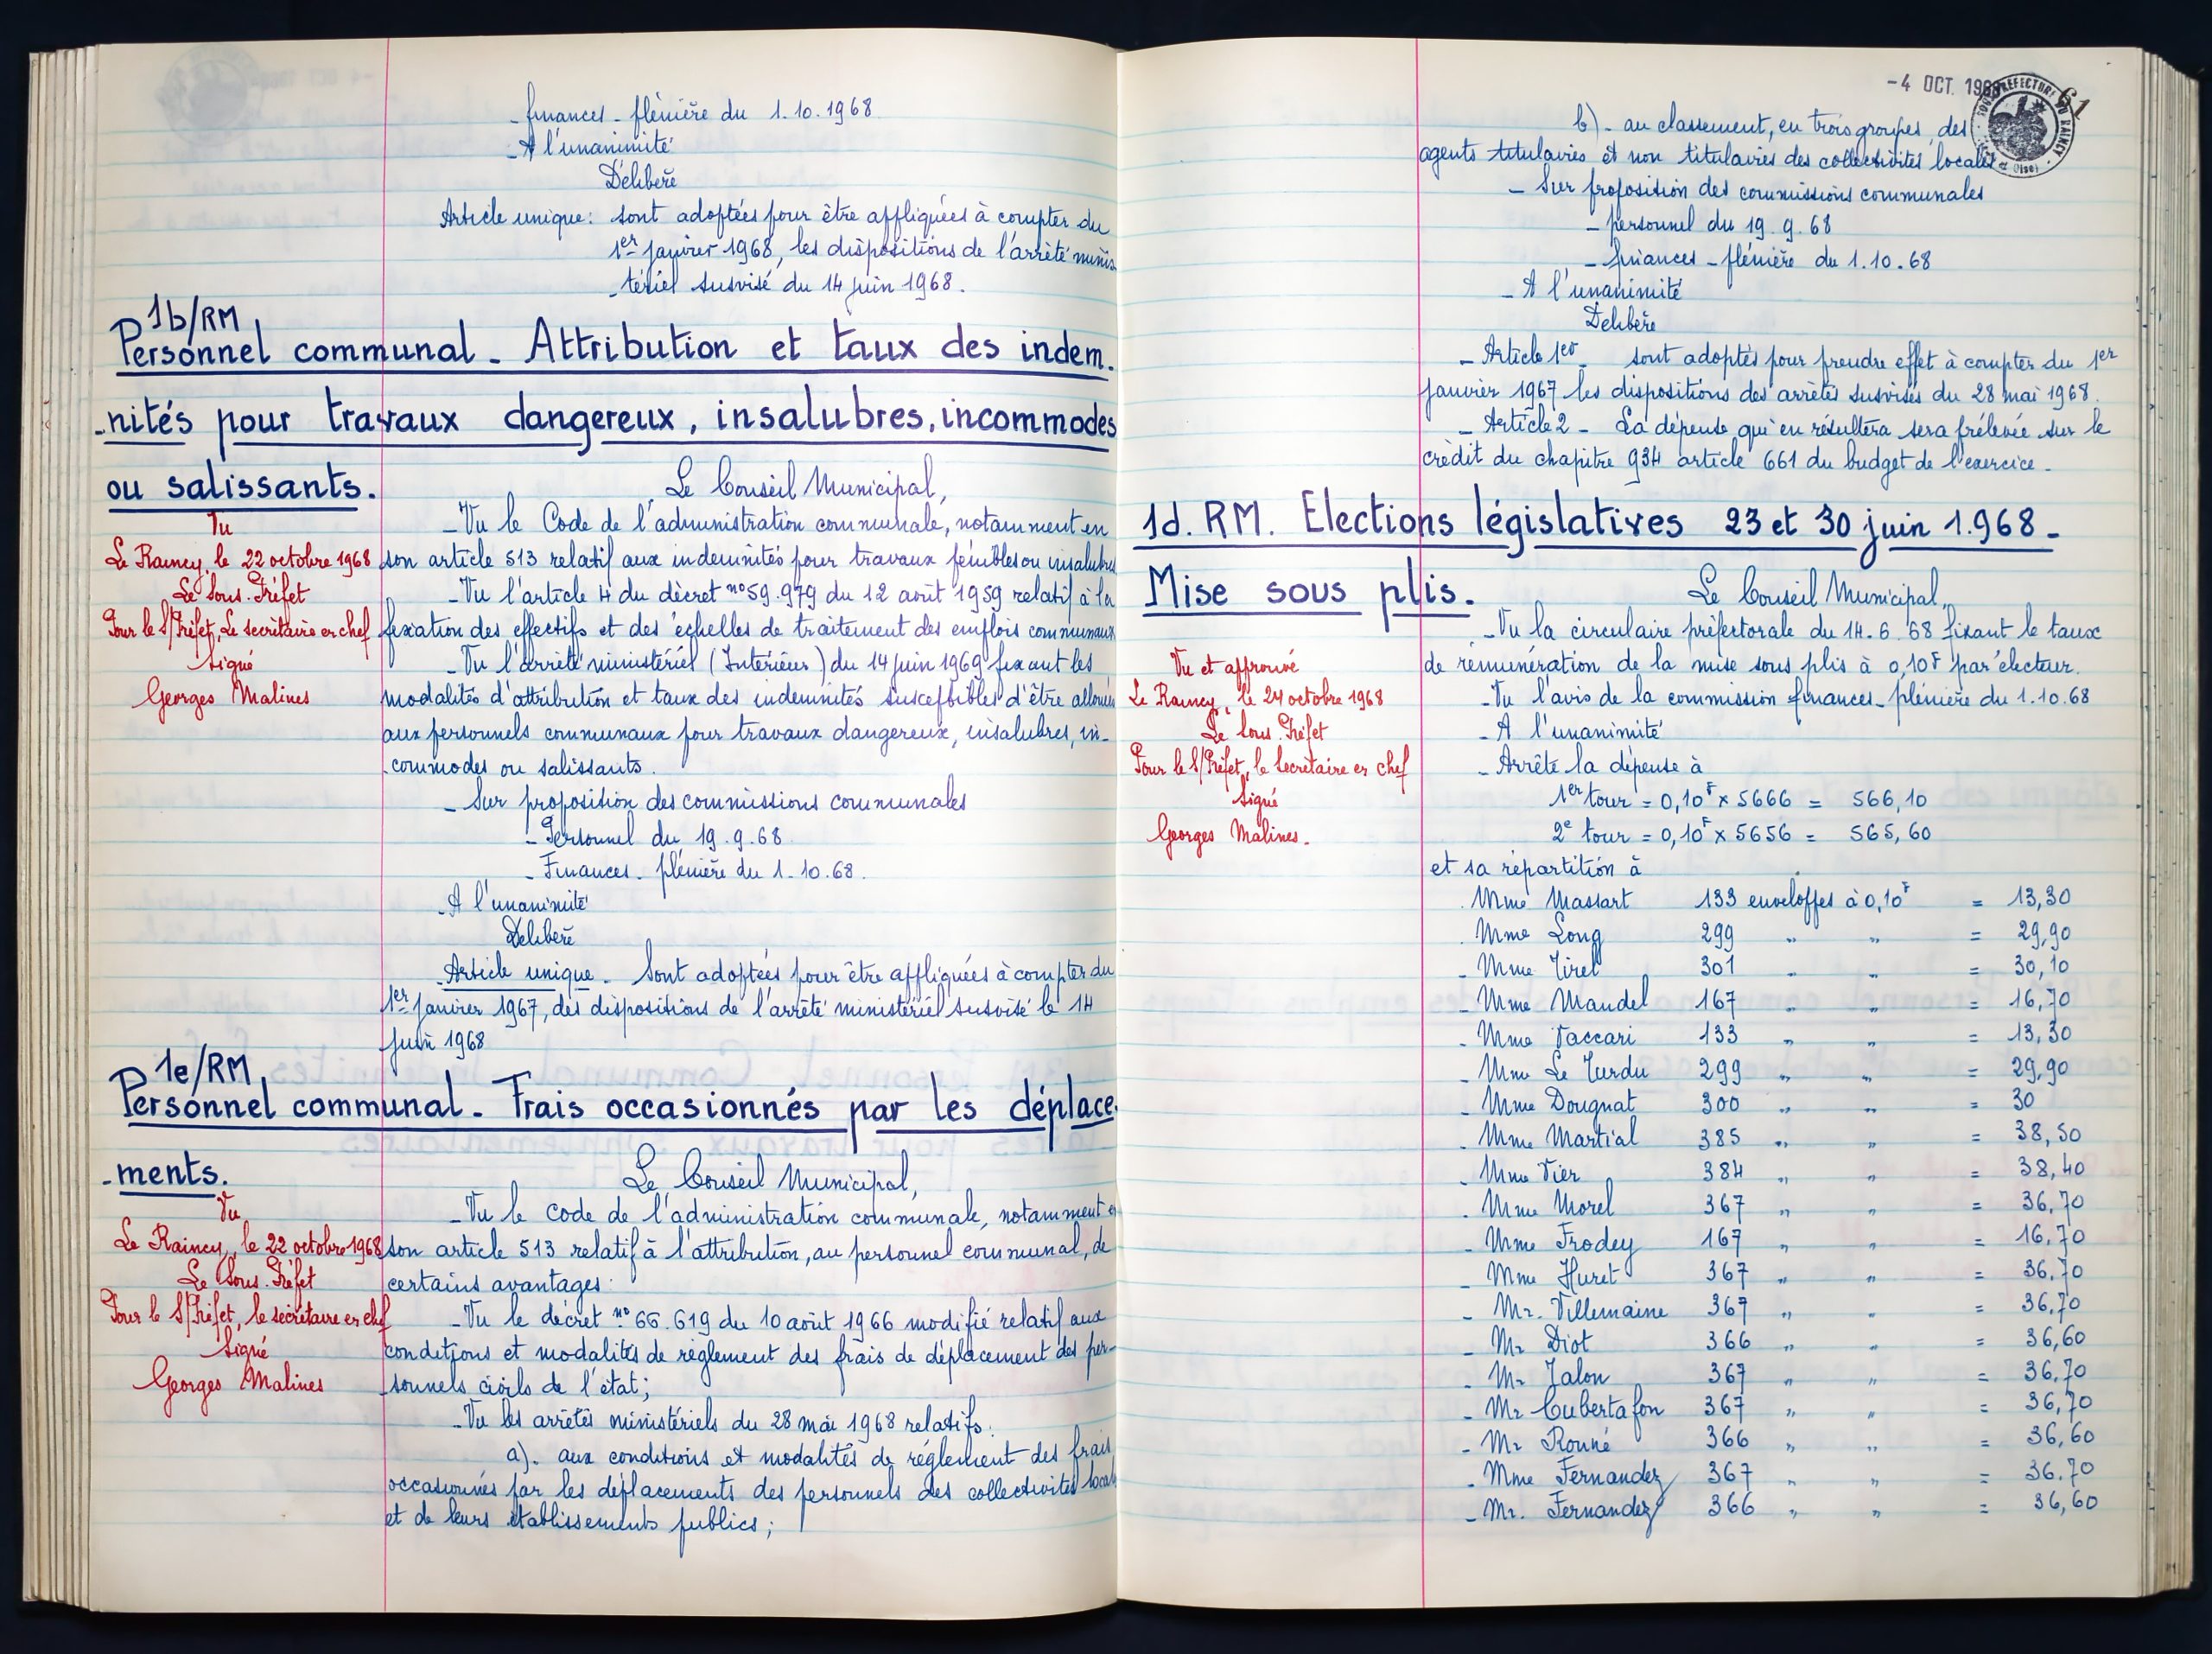 - finances - plénière du 1.10.1968
- A l'unanimité
Délibère
Article unique: sont adoptées pour être appliquées à compter du
1er janvier 1968, les dispositions de l'arrêté minis
-tériel susvisé du 14 juin 1968.
1b/RM
Personnel communal - Attribution et taux des indem.
-nités pour travaux dangereux, insalubres, incommodes
ou salissants.
Le Conseil Municipal,
Vu
Le Raincy, le 22 octobre 1968
Le Sous-Préfet
Pour le S/Préfet, Le secrétaire en chef
Signé
Georges Malines
- Vu le Code de l'administration communale, notamment en
son article 513 relatif aux indemnités pour travaux pénibles ou insalubres
- Vu l'article 4 du décret n° 59.979 du 12 août 1959 relatif à la
fixation des effectifs et des échelles de traitement des emplois communaux
- Vu l'arrêté ministériel (Intérieur) du 14 juin 1969 fixant les
modalités d'attribution et taux des indemnités susceptibles d'être allouées
aux personnels communaux pour travaux dangereux, insalubres, in-
-commodes ou salissants.
- Sur proposition des commissions communales
- Personnel du 19.9.68
- Finances - plénière du 1-10.68.
- A l'unanimité
Délibère
Article unique. Sont adoptées pour être appliquées à compter du
1er janvier 1967, des dispositions de l'arrêté ministériel susvisé le 14
juin 1968
1e/RM
Personnel communal - Frais occasionnés par les déplace.
-ments.
Le Conseil Municipal,
Vu
Le Raincy, le 22 octobre 1968
Le Sous-Préfet
Pour le S/Préfet, le secrétaire en chef
Signé
Georges Malines
- Vu le code de l'administration communale, notamment en
son article 513 relatif à l'attribution, au personnel communal, de
certains avantages:
- Vu le décret n° 66.619 du 10 août 1966 modifié relatif aux
conditions et modalités de règlement des frais de déplacement des per-
sonnels civils de l'état;
- Vu les arrêtés ministériels du 28 mai 1968 relatifs:
a). aux conditions et modalités de règlement des frais
occasionnés par les déplacements des personnels des collectivités locales
et de leurs établissements publics;
-4 OCT. 1968
61
b) - au classement, en trois groupes, des
agents titulaires et non titulaires des collectivités locales
- Sur proposition des commissions communales
- personnel du 19.9.68
- finances - plénière du 1.10.68
- A l'unanimité
Délibère
- Article 1er - sont adoptés pour prendre effet à compter du 1er
janvier 1967 les dispositions des arrêtés susvisés du 28 mai 1968.
- Article 2 - La dépense qui en résultera sera prélevée sur le
crédit du chapitre 934 article 661 du budget de l'exercice.
1d. RM. Elections législatives 23 et 30 juin 1.968 -
Mise sous plis.
Le Conseil Municipal,
Vu et approuvé
Le Raincy, le 24 octobre 1968
Le Sous-Préfet
Pour le S/Préfet, le secrétaire en chef
Signé
Georges Malines.
- Vu la circulaire préfectorale du 14.6.68 fixant le taux
de rémunération de la mise sous plis à 0,10F par électeur.
- Vu l'avis de la commission finances - plénière du 1.10.68
- A l'unanimité
- Arrête la dépense à
1er tour = 0,10F x 5666 = 566,10
2e tour = 0,10F x 5656 = 565,60
et sa répartition à
- Mme Massart 133 enveloppes à 0,10F = 13,30
- Mme Long 299 " " = 29,90
- Mme Tirel 301 " " = 30,10
- Mme Mandel 167 " " = 16,70
- Mme Vaccari 133 " " = 13,30
- Mme Le Turdu 299 " " = 29,90
- Mme Dougnat 300 " " = 30
- Mme Martial 385 " " = 38,50
- Mme Vier 384 " " = 38,40
- Mme Morel 367 " " = 36,70
- Mme Frodey 167 " " = 16.70
- Mme Huret 367 " " = 36,70
- Mr. Villemaine 367 " " = 36,70
- Mr Diot 366 " " = 36,60
- Mr Jalon 367 " " = 36,70
- Mr Cubertafon 367 " " = 36,70
- Mr Ronné 366 " " = 36,60
- Mme Fernandez 367 " " = 36.70
- Mr. Fernandez 366 " " = 36,60